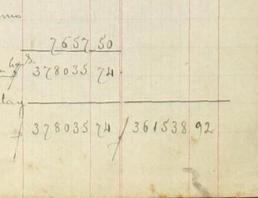 7657 50
378035 74
378035 74 361538 92